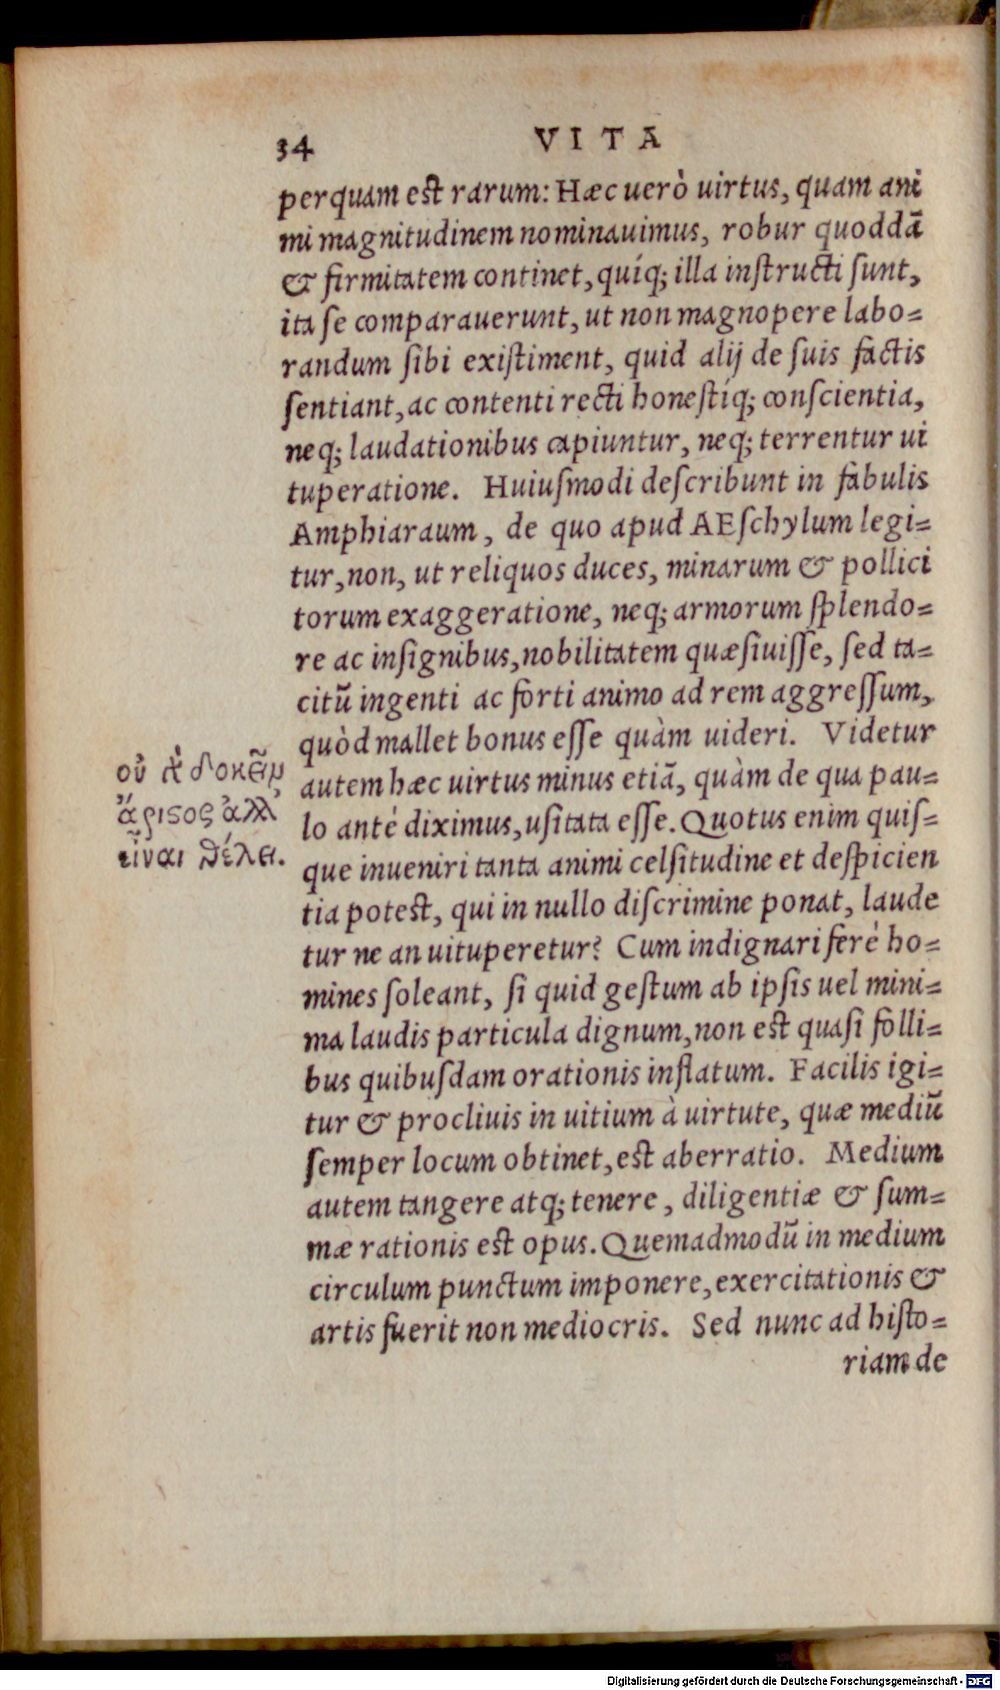 34 VITA
perquam est rarum: Hæc uerò uirtus, quam ani
mi magnitudinem nominauimus, robur quoddā
& firmitatem continet, quíq; illa instructi sunt,
ita se comparauerunt, ut non magnopere labo=
randum sibi existiment, quid alij de suis factis
sentiant, ac contenti recti honestíq; conscientia,
neq; laudationibus capiuntur, neq; terrentur ui
tuperatione. Huiusmodi describunt in fabulis
Amphiaraum, de quo apud AEschylum legi=
tur, non, ut reliquos duces, minarum & pollici
torum exaggeratione, neq; armorum splendo=
re ac insignibus, nobilitatem quæsiuisse, sed ta=
citū ingenti ac forti animo ad rem aggressum,
quòd mallet bonus esse quàm uideri. Videtur
autem hæc uirtus minus etiā, quàm de qua pau=
lo antè diximus, usitata esse. Quotus enim quis=
que inueniri tanta animi celsitudine et despicien
tia potest, qui in nullo discrimine ponat, laude
tur ne an uituperetur? Cum indignari ferè ho=
mines soleant, si quid gestum ab ipsis uel mini=
ma laudis particula dignum, non est quasi folli=
bus quibusdam orationis inflatum. Facilis igi=
tur & procliuis in uitium à uirtute, quæ mediū
semper locum obtinet, est aberratio. Medium
autem tangere atq; tenere, diligentiæ & sum=
mæ rationis est opus. Quemadmodū in medium
circulum punctum imponere, exercitationis &
artis fuerit non mediocris. Sed nunc ad histo=
riam de
οὐ δοκεῖν
ἄριστος ἀλλ'
εἶναι θέλει.
Digitalisierung gefördert durch die Deutsche Forschungsgemeinschaft - DFG